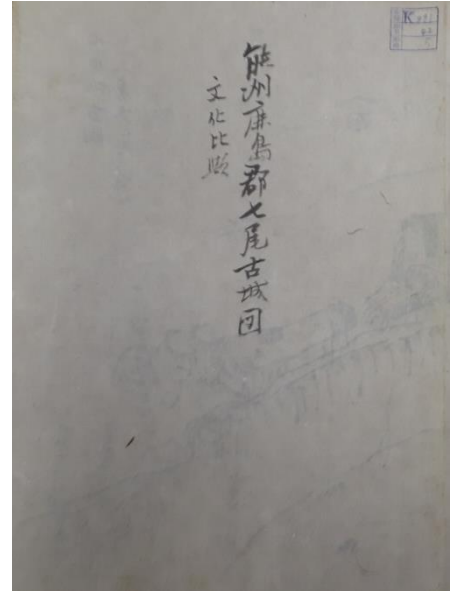 能洲鹿島郡七尾古城図
文化比